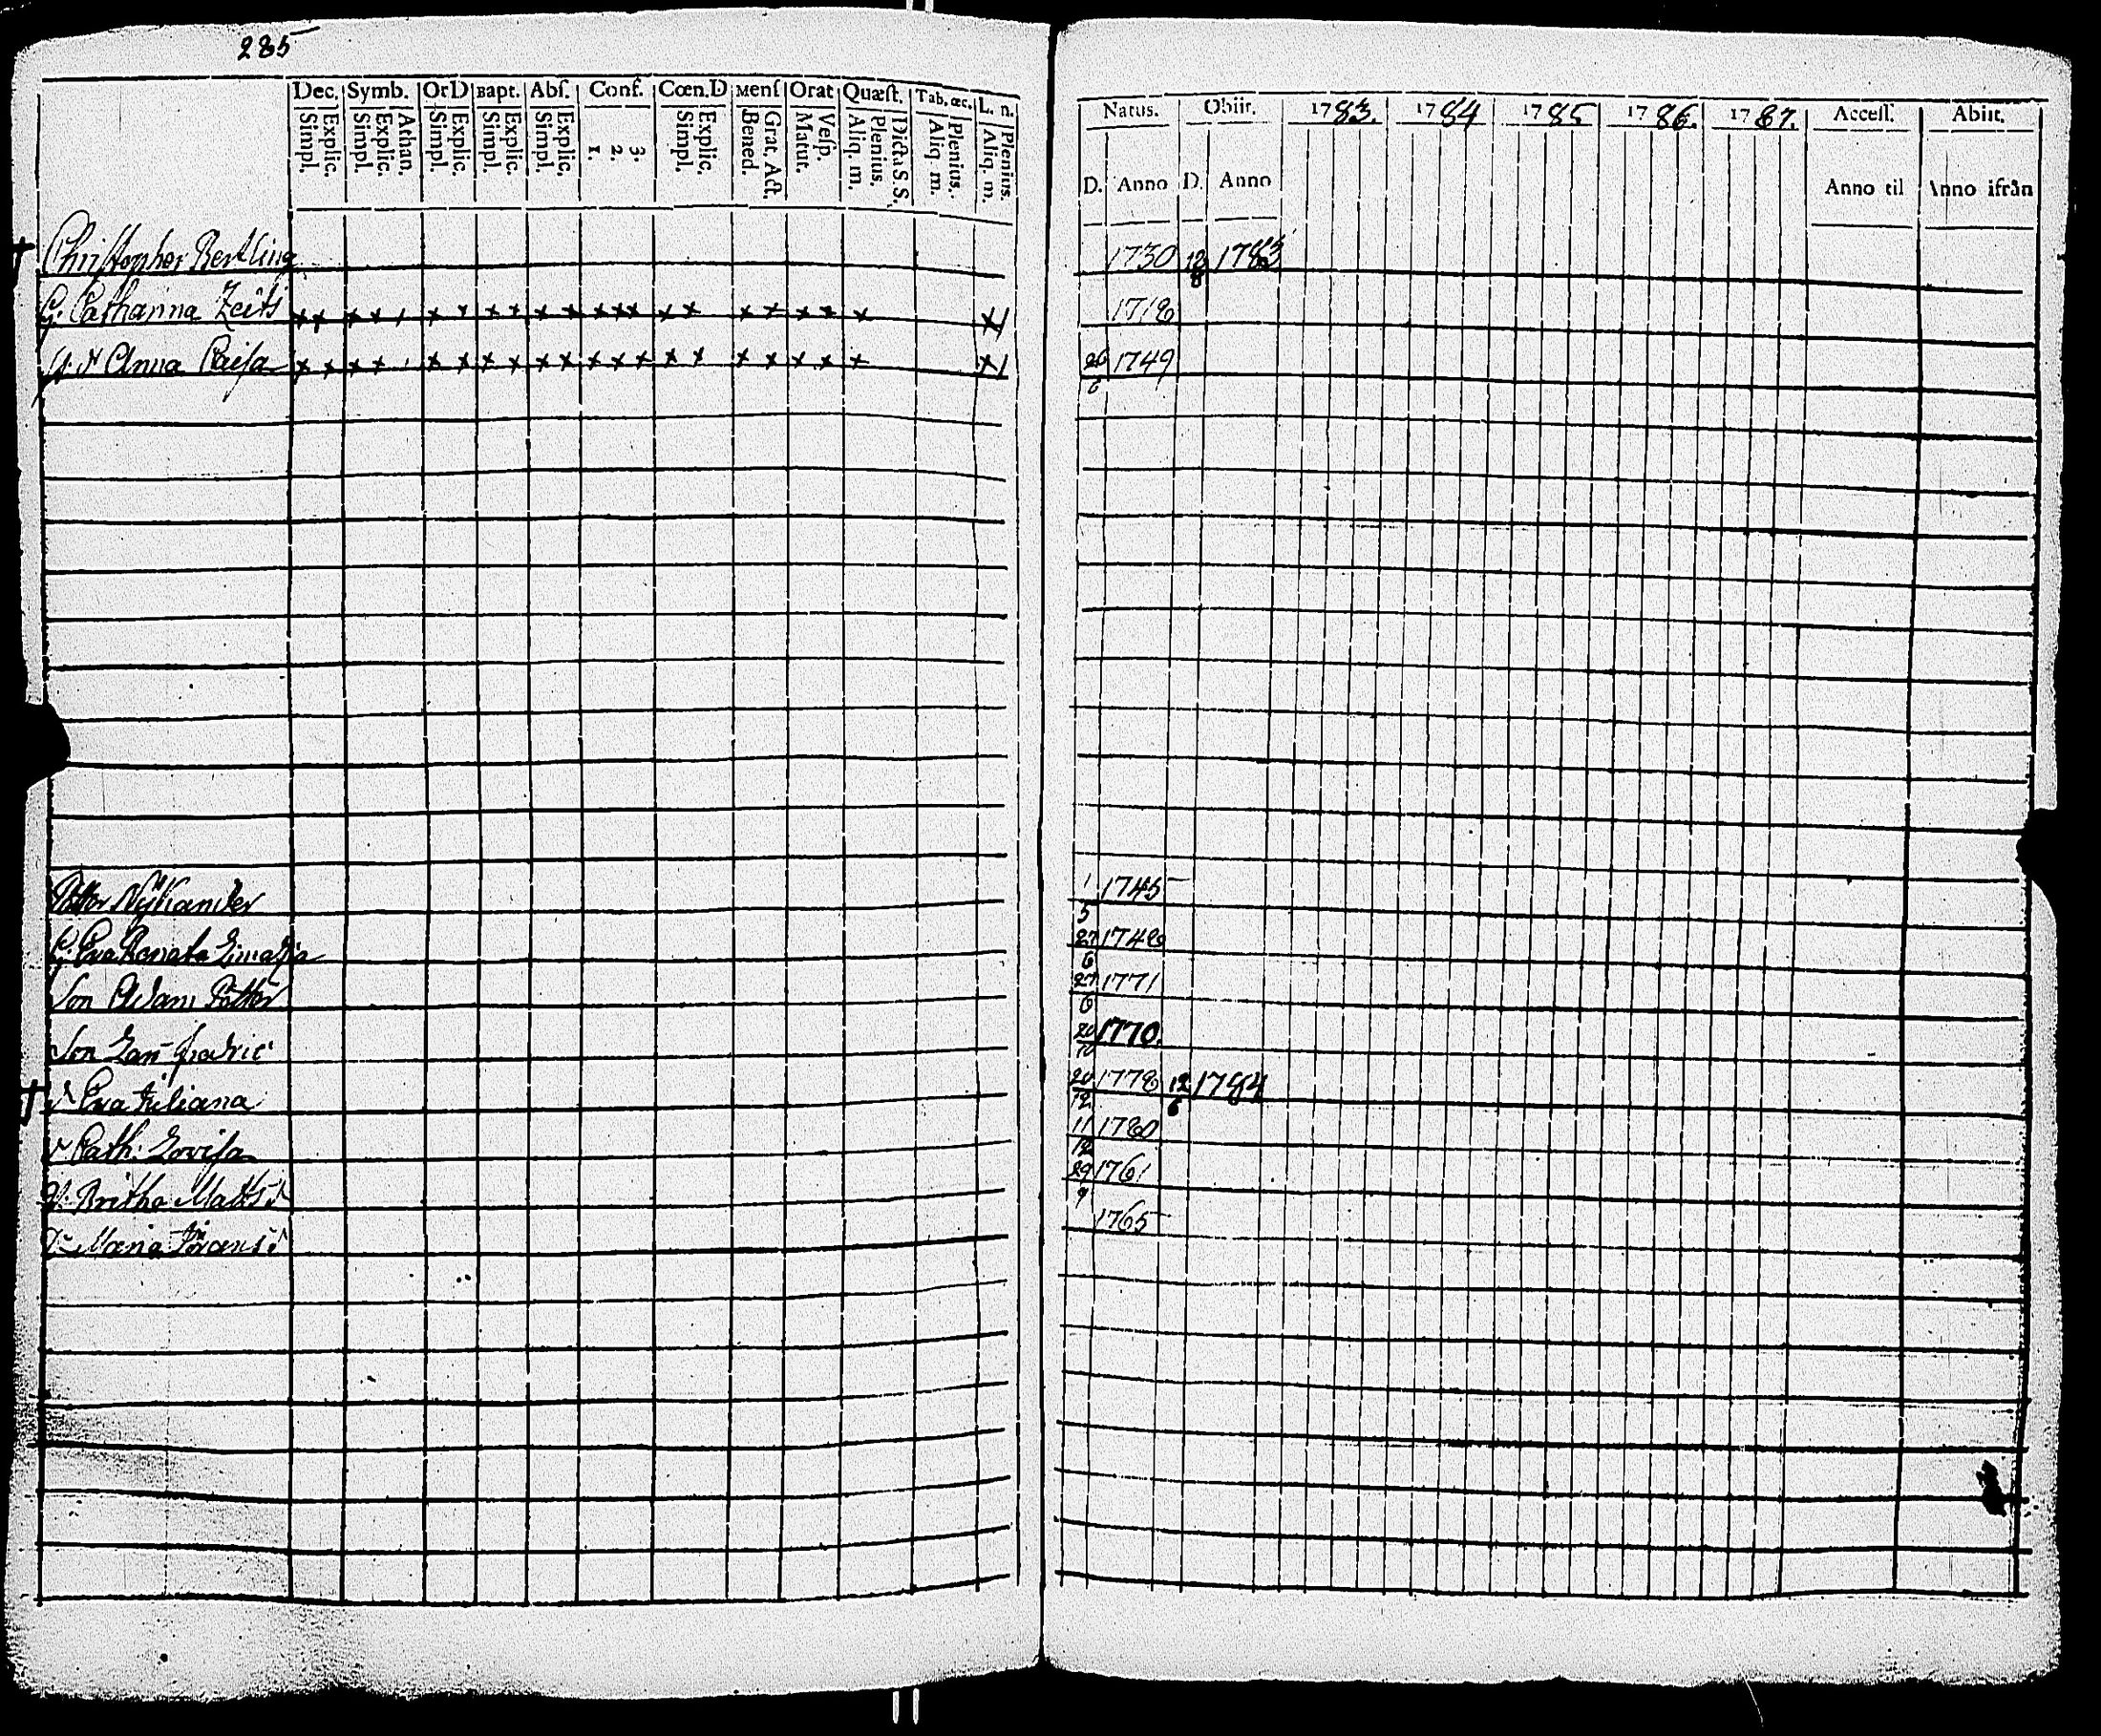 285
Dec. Symb. Or D Bapt. Abſ. Conf. Cœn. D Menſ Orat Quæſt. Tab. œc. L. n.
Simpl. Explic. Simpl. Explic. Athan. Simpl. Explic. Simpl. Explic. Simpl. Explic. 1. 2. 3. Simpl. Explic. Bened. Grat. Act. Matut. Veſp. Aliq. m. Plenius. Dicta S. S. Aliq. m. Plenius. Aliq. m. Plenius.
Natus. Obiit. 1783. 1784 1785 1786. 1787. Acceſſ. Abiit.
D. Anno D. Anno Anno til Anno ifrån
† Christopher Bertling 1730 12/8 1783
H. Catharina Zeits x x x x x x x x x x x x x x x x x x x x 1718
Anna Caisa x x x x x x x x x x x x x x x x x x x x 1749
Petter Nykander 1/5 1745
H. Eva Renata 27/6 1748
Son Adam Petter 27/6 1771
Son Fredric 20/10 1770.
† Eva Juliana 20/12 1778 12/6 1784
Cath: Lovisa 11/12 1780
Britha Matts 29/9 1761
Maria Jörans 1765